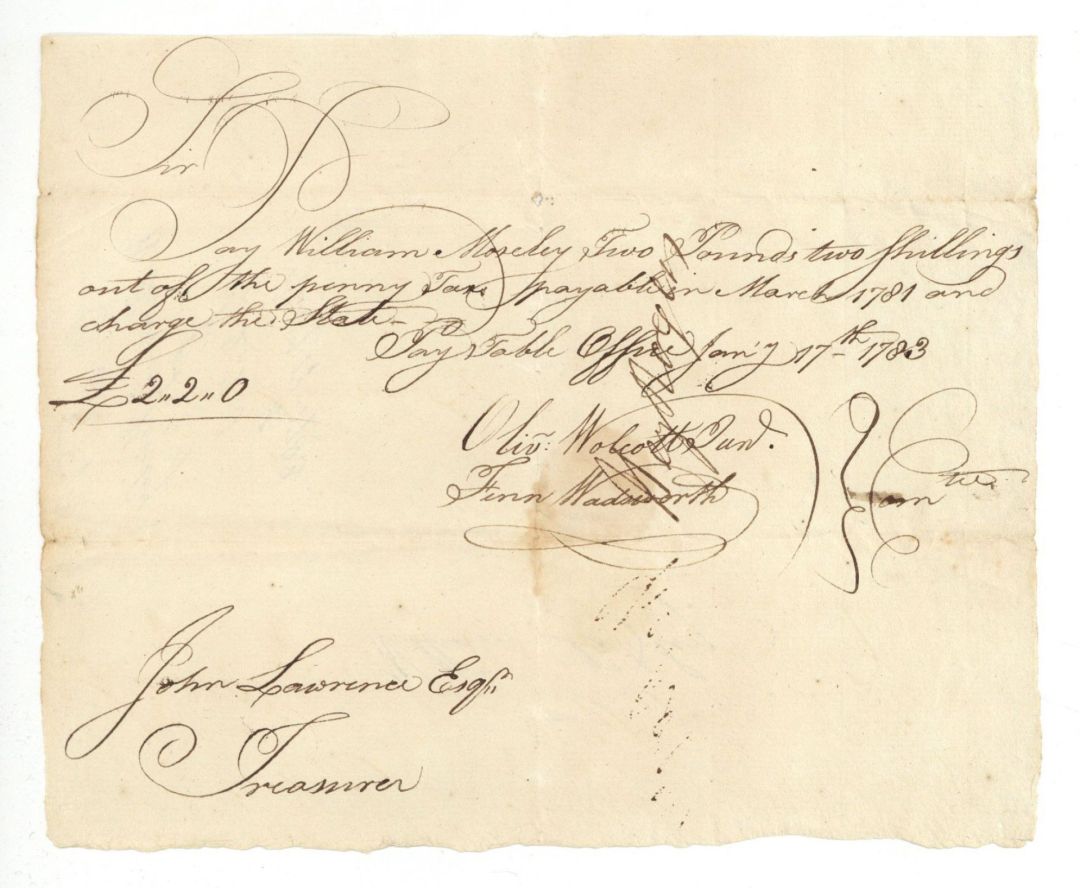 Sir
Pay William Moseley Two Pounds two Shillings
out of the penny Tax payable in March 1781 and
charge the State
Pay Table Office Jan'y 17th 1783
£2,,2,,0
Oliv: Wolcott Junr.
Fenn Wadsworth
Comtee
John Lawrence Esqr
Treasurer